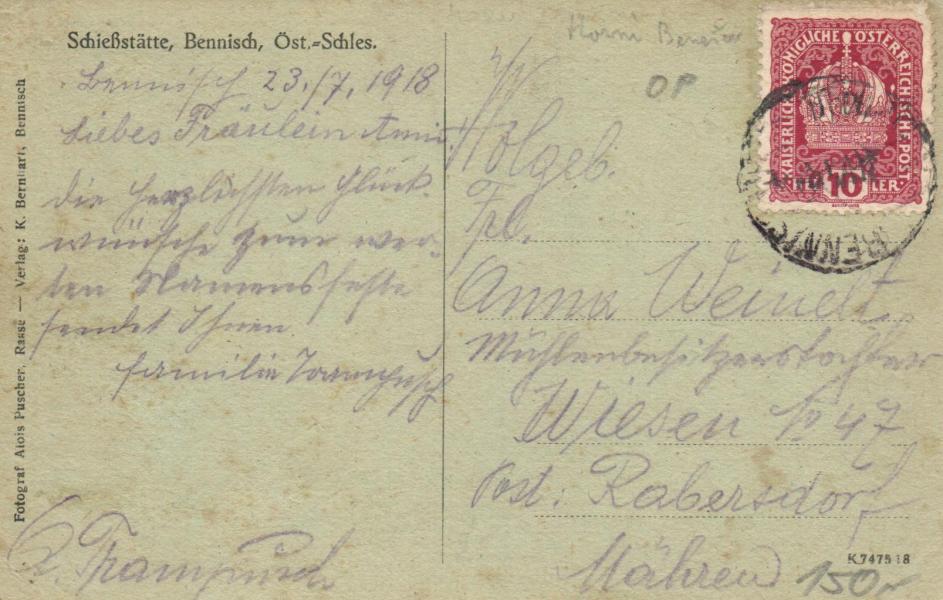 Schießstätte, Bennisch, Öst.-Schles.
Bennisch 23./7. 1918
Liebes Fräulein Anni
die herzlichsten Glück-
wünsche zum wer-
ten Namensfeste
sendet Ihnen
Familie Trampusch
Trampusch
Fotograf Alois Puscher, Rasse — Verlag: K. Bernhart, Bennisch
Horní Benešov
OP
KAISERLICHE KÖNIGLICHE ÖSTERREICHISCHE POST
10
BENNISCH
Wolgeb.
Frl.
Anna Weindl
Mühlenbesitzerstochter
Wiesen No 47
Post: Rabersdorf
Mähren
K 7475 18
150,-